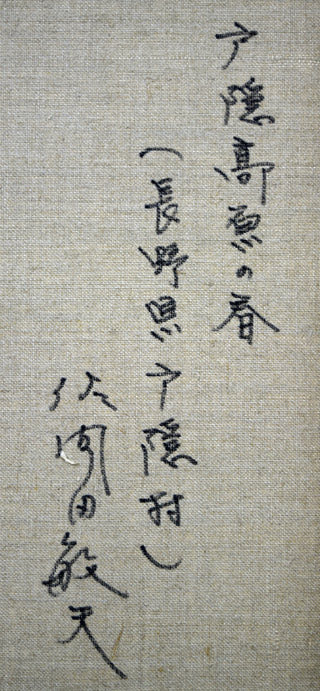 戸隠高原の春
(長野県戸隠村)
佐間田敏夫